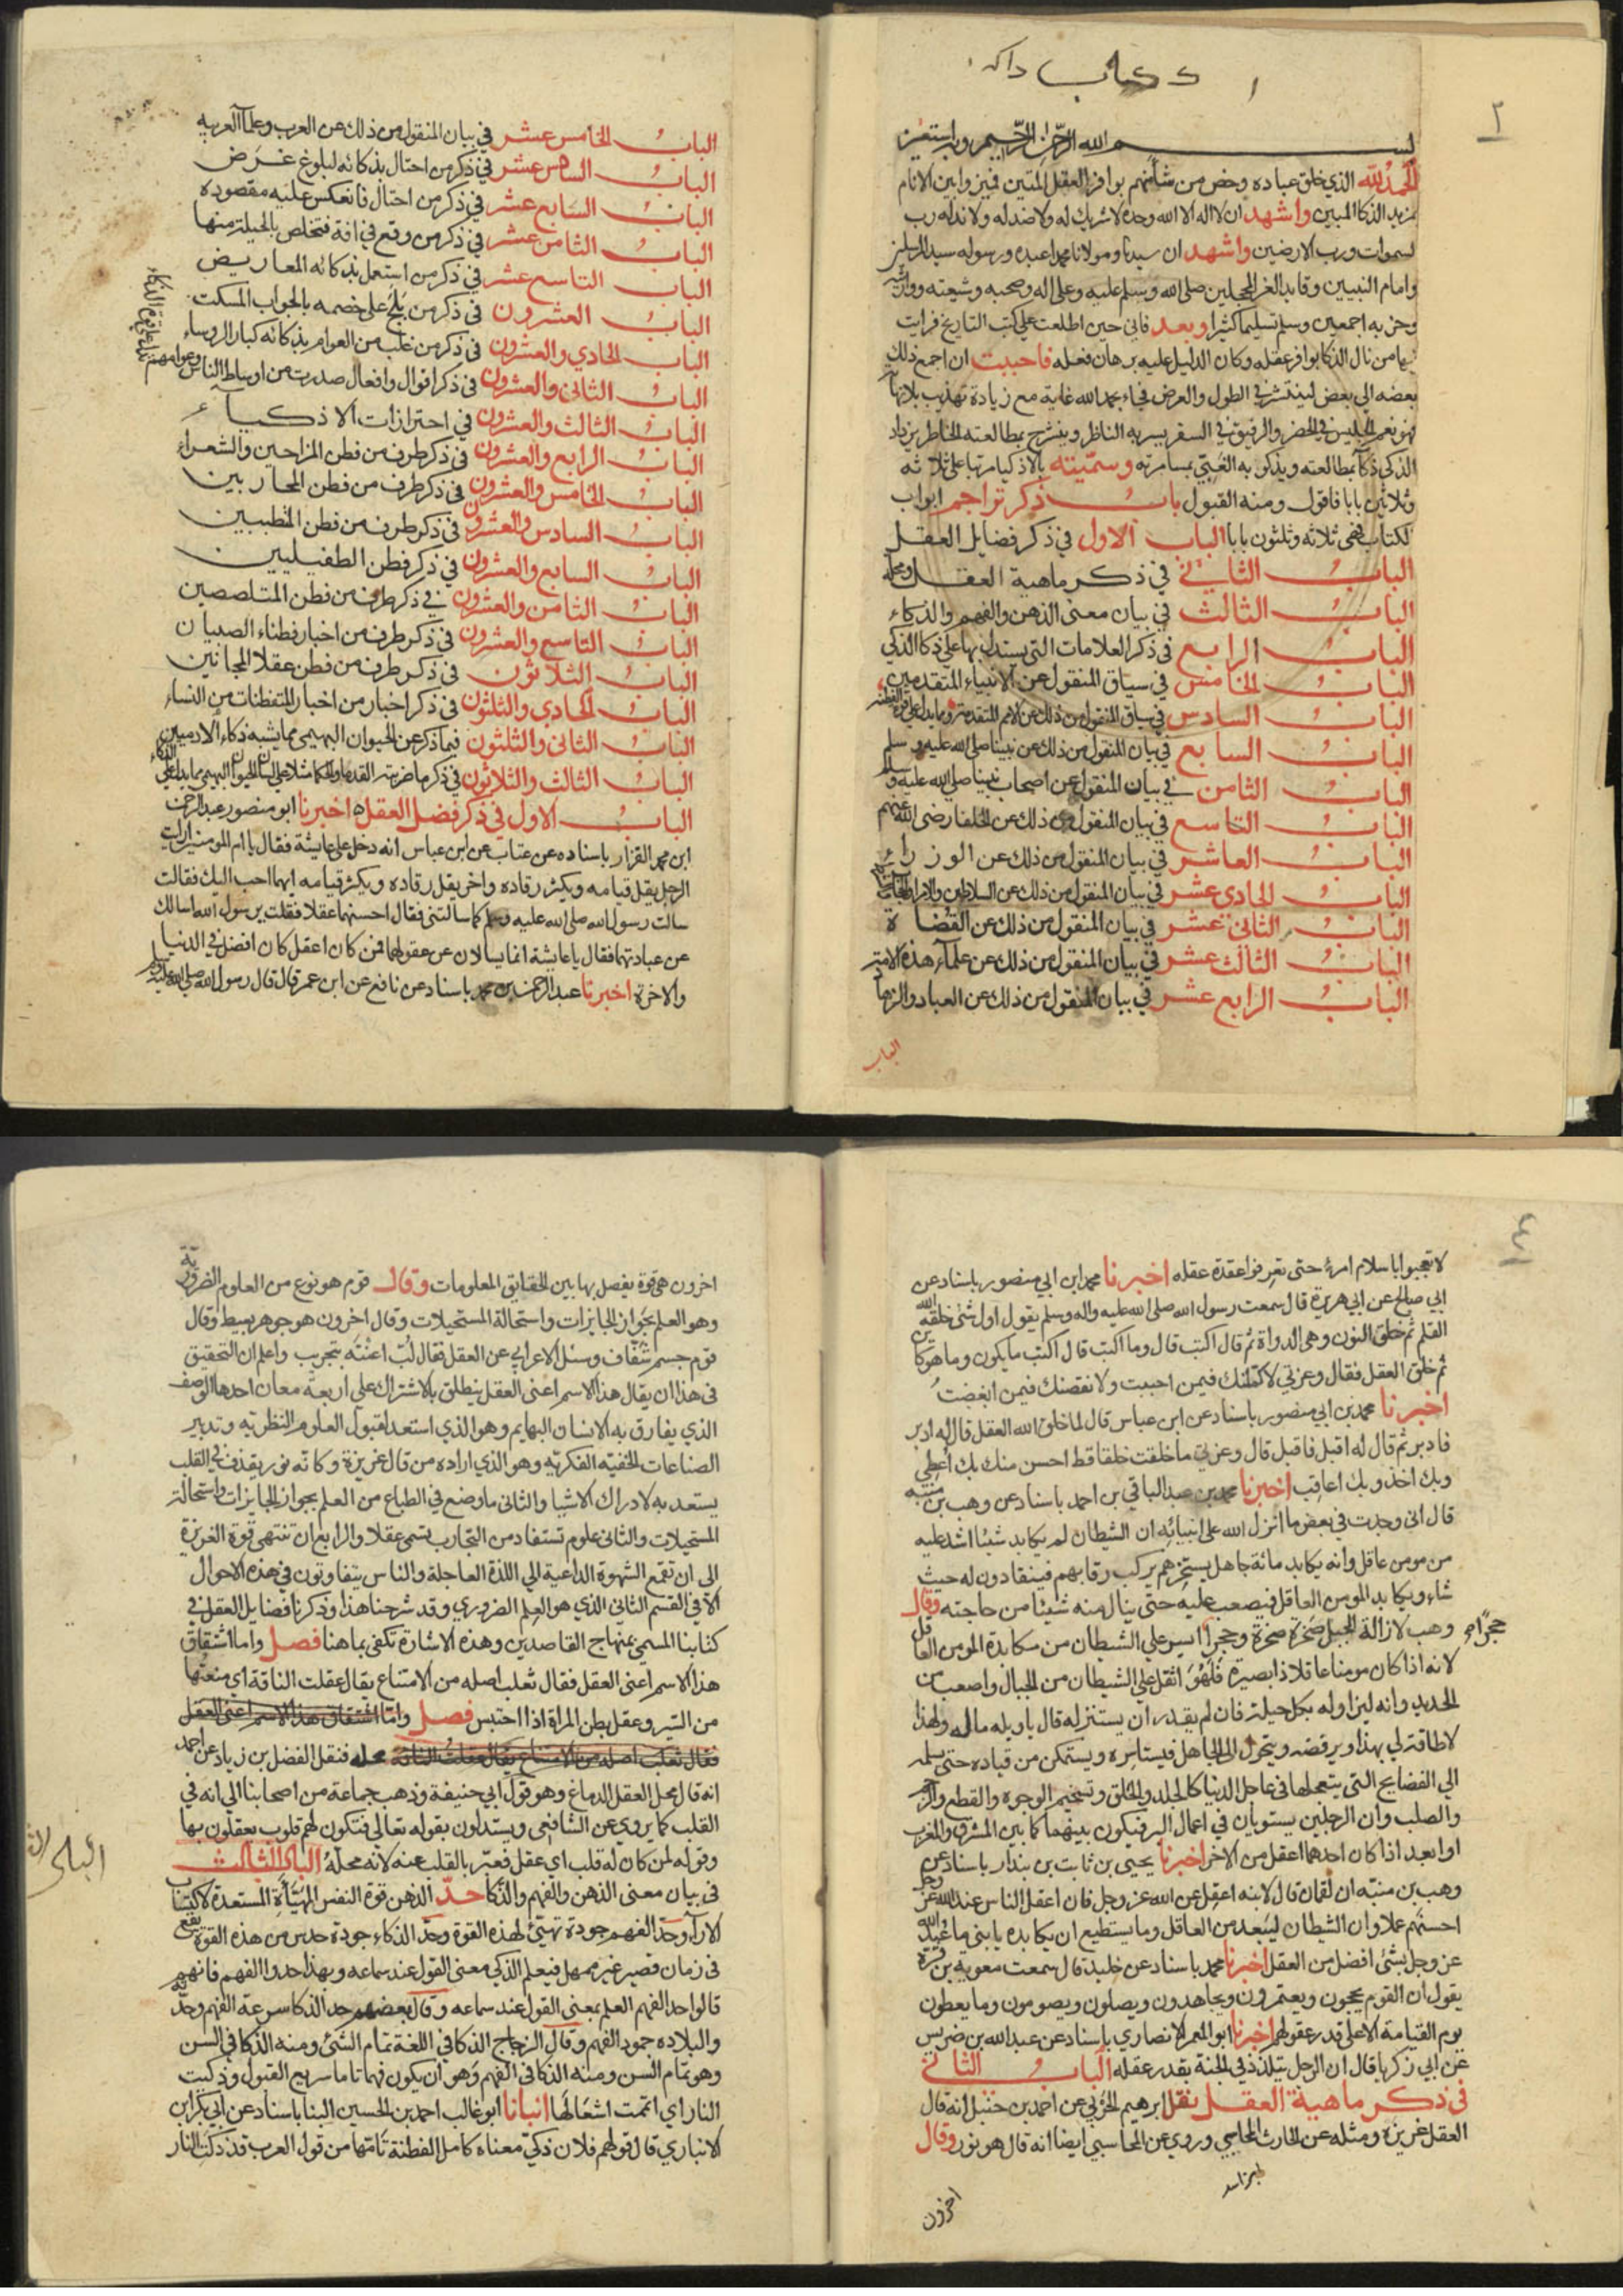 كتاب
٢
بسم الله الرحمن الرحيم وبه نستعين
الحمد لله الذي خلق عباده وخص من شا منهم بوافر العقل المتين فميز وابن الانام
بمزيد الذكا المبين واشهد ان لا اله الا الله وحده لا شريك له ولا ضد له ولا ند له رب
السموات ورب الارضين واشهد ان سيدنا ومولانا محمدا عبده ورسوله سيد المرسلين
وامام النبيين وقايد الغر المحجلين صلى الله وسلم عليه وعلى اله وصحبه وشيعته ووارثيه
وحزبه اجمعين وسلم تسليما كثيرا وبعد فاني حين اطلعت على كتب التاريخ فرايت
فيها من نال الذكا بوافر عقله وكان الدليل عليه برهان فعله فاحببت ان اجمع ذلك
بعضه الى بعض لينتشر في الطول والعرض فجاء بحمد الله غاية مع زيادة تهذيب بلا نهاية
فهو نعم الجليس في الحضر والرفيق في السفر يسر به الناظر وينشرح بمطالعته الخاطر يزداد
الذكي ذكآ بمطالعته ويذكو به الغبي بمسامرته وسميته بالاذكيا مرتبا على ثلاثه
وثلاثين بابا فاقول ومنه القبول باب ذكر تراجم ابواب
الكتاب فهي ثلاثه وثلثون بابا الباب الاول في ذكر فضايل العقل
الباب الثاني في ذكر ماهية العقل ومحله
الباب الثالث في بيان معنى الذهن والفهم والذكاء
الباب الرابع في ذكر العلامات التي يستدل بها على ذكا الذكي
الباب الخامس في سياق المنقول عن الانبياء المتقدمين
الباب السادس في سياق المنقول من ذلك عن الامم المتقدمة ومما يدل على قوة الفطنة
الباب السابع في بيان المنقول من ذلك عن نبينا صلى الله عليه وسلم
الباب الثامن في بيان المنقول عن اصحاب نبينا صلى الله عليه وسلم
الباب التاسع في بيان المنقول من ذلك عن الخلفا رضى الله عنهم
الباب العاشر في بيان المنقول من ذلك عن الوزراء
الباب الحادي عشر في بيان المنقول من ذلك عن السلاطين والامراء
الباب الثاني عشر في بيان المنقول من ذلك عن القضاة
الباب الثالث عشر في بيان المنقول من ذلك عن علمآء هذه الامة
الباب الرابع عشر في بيان المنقول من ذلك عن العباد والزهاد
الباب
الباب الخامس عشر في بيان المنقول من ذلك عن العرب وعلمآ العربيه
الباب السادس عشر في ذكر من احتال بذكائه لبلوغ غرض
الباب السابع عشر في ذكر من احتال فانعكس عليه مقصوده
الباب الثامن عشر في ذكر من وقع في افة فتخلص بالحيلة منها
الباب التاسع عشر في ذكر من استعمل بذكائه المعاريض
الباب العشرون في ذكر من فلج على خصمه بالجواب المسكت
الباب الحادي والعشرون في ذكر من غلب من العوام بذكائه كبار الروساء
الباب الثاني والعشرون في ذكر اقوال وافعال صدرت من اوساط الناس وعوامهم تدل على قوة الذكاء
الباب الثالث والعشرون في احترازات الاذكياء
الباب الرابع والعشرون في ذكر طرف من فطن المزاحين والشعراء
الباب الخامس والعشرون في ذكر طرف من فطن المحاربين
الباب السادس والعشرون في ذكر طرف من فطن المطببين
الباب السابع والعشرون في ذكر فطن الطفيليين
الباب الثامن والعشرون في ذكر طرف من فطن المتلصصين
الباب التاسع والعشرون في ذكر طرف من اخبار فطناء الصبيان
الباب الثلاثون في ذكر طرف من فطن عقلا المجانين
الباب الحادي والثلثون في ذكر اخبار من اخبار المتفطنات من النساء
الباب الثاني والثلثون فيما ذكر عن الحيوان البهيمى مما يشبه ذكاء الادميين
الباب الثالث والثلاثون في ذكر ما ضربته القدما والحكما مثلا على لسان الحيوان البهيم مما يدل على الذكاء
الباب الاول في ذكر فضل العقل اخبرنا ابو منصور عبد الرحمن
ابن محمد القزار باسناده عن عتاب عن ابن عباس انه دخل على عايشة فقال يا ام المومنين ارايت
الرجل يقل قيامه ويكثر رقاده واخر يقل رقاده ويكثر قيامه ايهما احب اليك فقالت
سالت رسول الله صلى الله عليه وسلم كما سالتني فقال احسنهما عقلا فقلت يرسول الله اسالك
عن عبادتهما فقال يا عايشة انما يسالان عن عقولهما فمن كان اعقل كان افضل في الدنيا
والاخرة اخبرنا عبد الرحمن بن محمد باسناد عن نافع عن ابن عمر قال قال رسول الله صلى الله عليه وسلم
٤
لا تعجبوا باسلام امرئ حتى تعرفوا عقدة عقله اخبرنا محمد ابن ابي منصور باسناد عن
ابي صالح عن ابي هريرة قال سمعت رسول الله صلى الله عليه واله وسلم يقول اول شئ خلقه الله
القلم ثم خلق النون وهى الدواة ثم قال اكتب قال وما اكتب قال اكتب ما يكون وما هو كاين
ثم خلق العقل فقال وعزتي لاكملنك فيمن احببت ولانقصنك فيمن ابغضت
اخبرنا محمد بن ابي منصور باسناد عن ابن عباس قال لما خلق الله العقل قال له ادبر
فادبر ثم قال له اقبل فاقبل قال وعزتي ما خلقت خلقا قط احسن منك بك اعطي
وبك اخذ وبك اعاقب اخبرنا محمد بن عبد الباقي بن احمد باسناد عن وهب بن منبه
قال اني وجدت في بعض ما انزل الله على انبيائه ان الشطان لم يكابد شيئا اشد عليه
من مومن عاقل وانه يكابد مائة جاهل يستجرهم يركب رقابهم فينقادون له حيث
شاء ويكابد المومن العاقل فيصعب عليه حتى ينال منه شيئا من حاجته وقال
وهب لازالة الجبل صخرة صخرة وحجرا ايسر على الشيطان من مكابدة المومن العاقل
حجرا
لانه اذا كان مومنا عاقلا ذا بصيرة فلهو اثقل على الشيطان من الجبال واصعب من
الحديد وانه ليزاوله بكل حيلة فان لم يقدر ان يستنزله قال يا ويله ماله ولهذا
لا طاقة لي بهذا ويرفضه ويتحول الى الجاهل فيستاسره ويستمكن من قياده حتى يسلمه
الى الفضايح التى يتعجلها في عاجل الدنيا كالجلد والحلق وتسخيم الوجوه والقطع والرجم
والصلب وان الرجلين يستويان في اعمال البر فيكون بينهما كما بين المشرق والمغرب
او ابعد اذا كان احدهما اعقل من الاخر اخبرنا يحيى بن ثابت بن بندار باسناد عن
وهب بن منبه ان لقمان قال لابنه اعقل عن الله عز وجل فان اعقل الناس عند الله عز وجل
احسنهم عملا وان الشطان ليبعد من العاقل وما يستطيع ان يكابده يا بني ما عبد الله
عز وجل بشئ افضل من العقل اخبرنا محمد باسناد عن خليد قال سمعت معوية بن قرة
يقول ان القوم يحجون ويعتمرون ويجاهدون ويصلون ويصومون وما يعطون
يوم القيامة الا على قدر عقولهم اخبرنا ابو المعمر الانصاري باسناد عن عبد الله بن ضريس
عن ابي زكريا قال ان الرجل يتلذذ في الجنة بقدر عقله الباب الثاني
في ذكر ماهية العقل نقل ابرهيم الحربي عن احمد بن حنبل انه قال
العقل غريزة ومثله عن الحارث المحاسبي وروي عن المحاسبي ايضا انه قال هو نور وقال
اخرون
اخرون هى قوة يفصل بها بين الحقايق المعلومات وقال قوم هو نوع من العلوم الضرورية
وهو العلم بجواز الجايزات واستحالة المستحيلات وقال اخرون هو جوهر بسيط وقال
قوم جسم شفاف وسئل الاعرابي عن العقل فقال لب اعنته بتجريب واعلم ان التحقيق
في هذا ان يقال هذا الاسم اعنى العقل ينطلق بالاشتراك على اربعة معان احدها الوصف
الذي يفارق به الانسان البهايم وهو الذي استعد لقبول العلوم النظريه وتدبير
الصناعات الخفيه الفكريه وهو الذي اراده من قال غريزة وكانه نور يقذف في القلب
يستعد به لادراك الاشيا والثاني ما وضع في الطباع من العلم بجواز الجايزات واستحالة
المستحيلات والثاني علوم تستفاد من التجارب تسمى عقلا والرابع ان تنتهى قوة الغريزة
الى ان تقمع الشهوة الداعية الى اللذة العاجلة والناس يتفاوتون في هذه الاحوال
الا في القسم الثاني الذي هو العلم الضروري وقد شرحنا هذا وذكرنا فضايل العقل في
كتابنا المسمى بمنهاج القاصدين وهذه الاشارة تكفى بما هنا فصل واما اشتقاق
هذا الاسم اعنى العقل فقال ثعلب اصله من الامتناع يقال عقلت الناقة اي منعتها
من السير وعقل بطن المراة اذا احتبس فصل واما اشتقاق هذا الاسم اعنى العقل
فقال ثعلب اصله من الامتناع يقال عقلت الناقة محله فنقل الفضل بن زياد عن احمد
انه قال محل العقل الدماغ وهو قول ابي حنيفة وذهب جماعة من اصحابنا الى انه في
القلب كما يروي عن الشافعى ويستدلون بقوله تعالى فتكون لهم قلوب يعقلون بها
وقوله لمن كان له قلب اي عقل فعبر بالقلب عنه لانه محله الباب الثالث
في بيان معنى الذهن والفهم والذكا حد الذهن قوة النفس المهيأة المستعدة لاكتساب
الارآء وحد الفهم جودة تهيئ لهذه القوة وحد الذكاء جودة حدس من هذه القوة يقع
في زمان قصير غير ممهل فيعلم الذكي معنى القول عند سماعه وبهذا حدوا الفهم فانهم
قالوا حد الفهم العلم بمعنى القول عند سماعه وقال بعضهم حد الذكا سرعة الفهم وحدته
والبلاده جمود الفهم وقال الزجاج الذكا في اللغة تمام الشئ ومنه الذكا في السن
وهو تمام السن ومنه الذكا في الفهم وهو ان يكون فهما تاما سريع القبول وذكيت
النار اي اتممت اشعالها انبانا ابو غالب احمد بن الحسين البنا باسناد عن ابي بكر ابن
الانباري قال قولهم فلان ذكي معناه كامل الفطنة تامتها من قول العرب قد ذكت النار